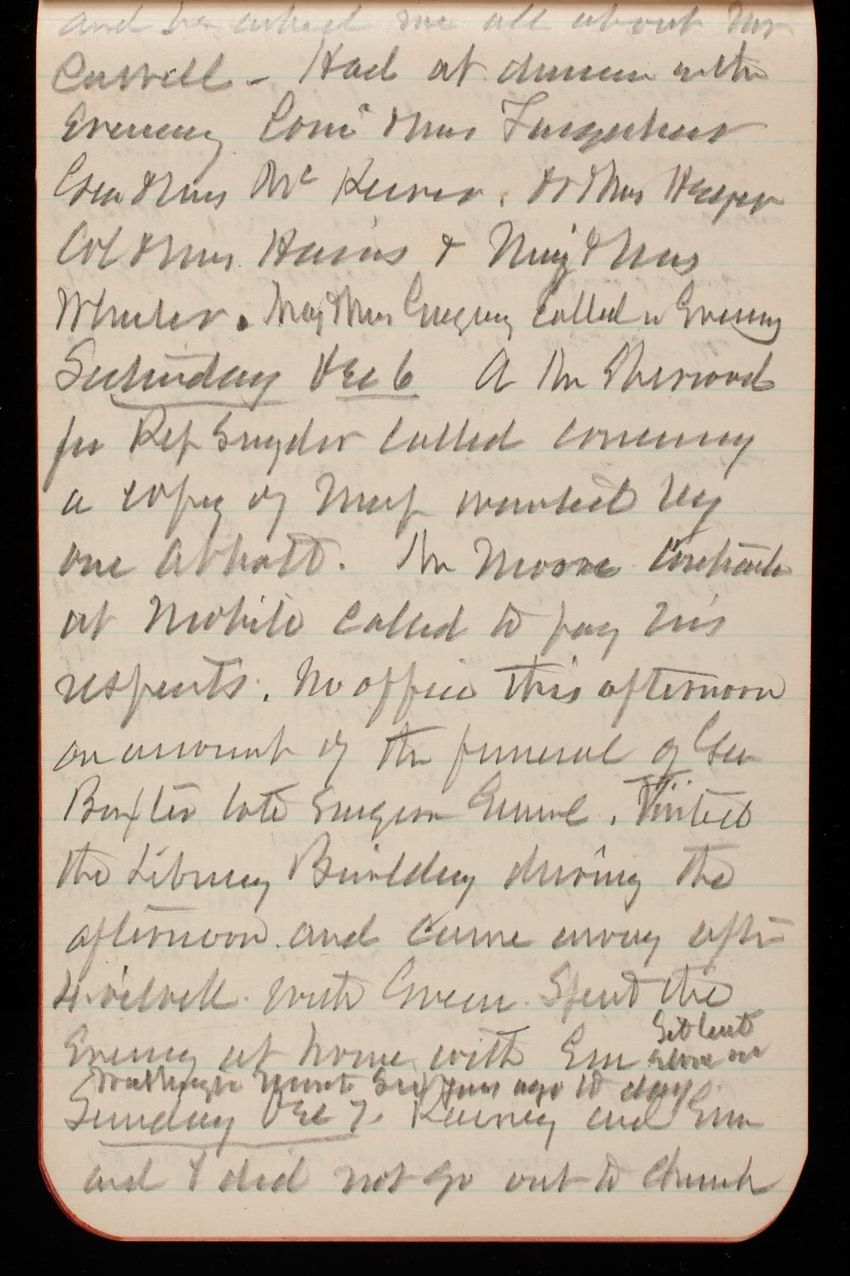 and he asked me all about Mr
Caswell - Had at dinner in the
Evening Com & Mrs Farquhar
Gen & Mrs Mc Keever. Dr & Mrs Harper
Col & Mrs Hains & Maj & Mrs
Wheeler. Maj & Mrs Gregory called in Evening
Saturday Dec 6 A Mr Sherwood
for Rep Snyder called concerning
a copy of Map wanted by
one Abbott. Mr Moore Contractor
at Mobile called to pay his
respects. No office this afternoon
on account of the funeral of Gen
Baxter late Surgeon General. Visited
the Library Building during the
afternoon and came away after
4 o'clock with Green. Spent the
Evening at home with Em Set last
stone on
Washington Monument Six years ago to day
Sunday Dec 7. Rainey and Em
and I did not go out to church